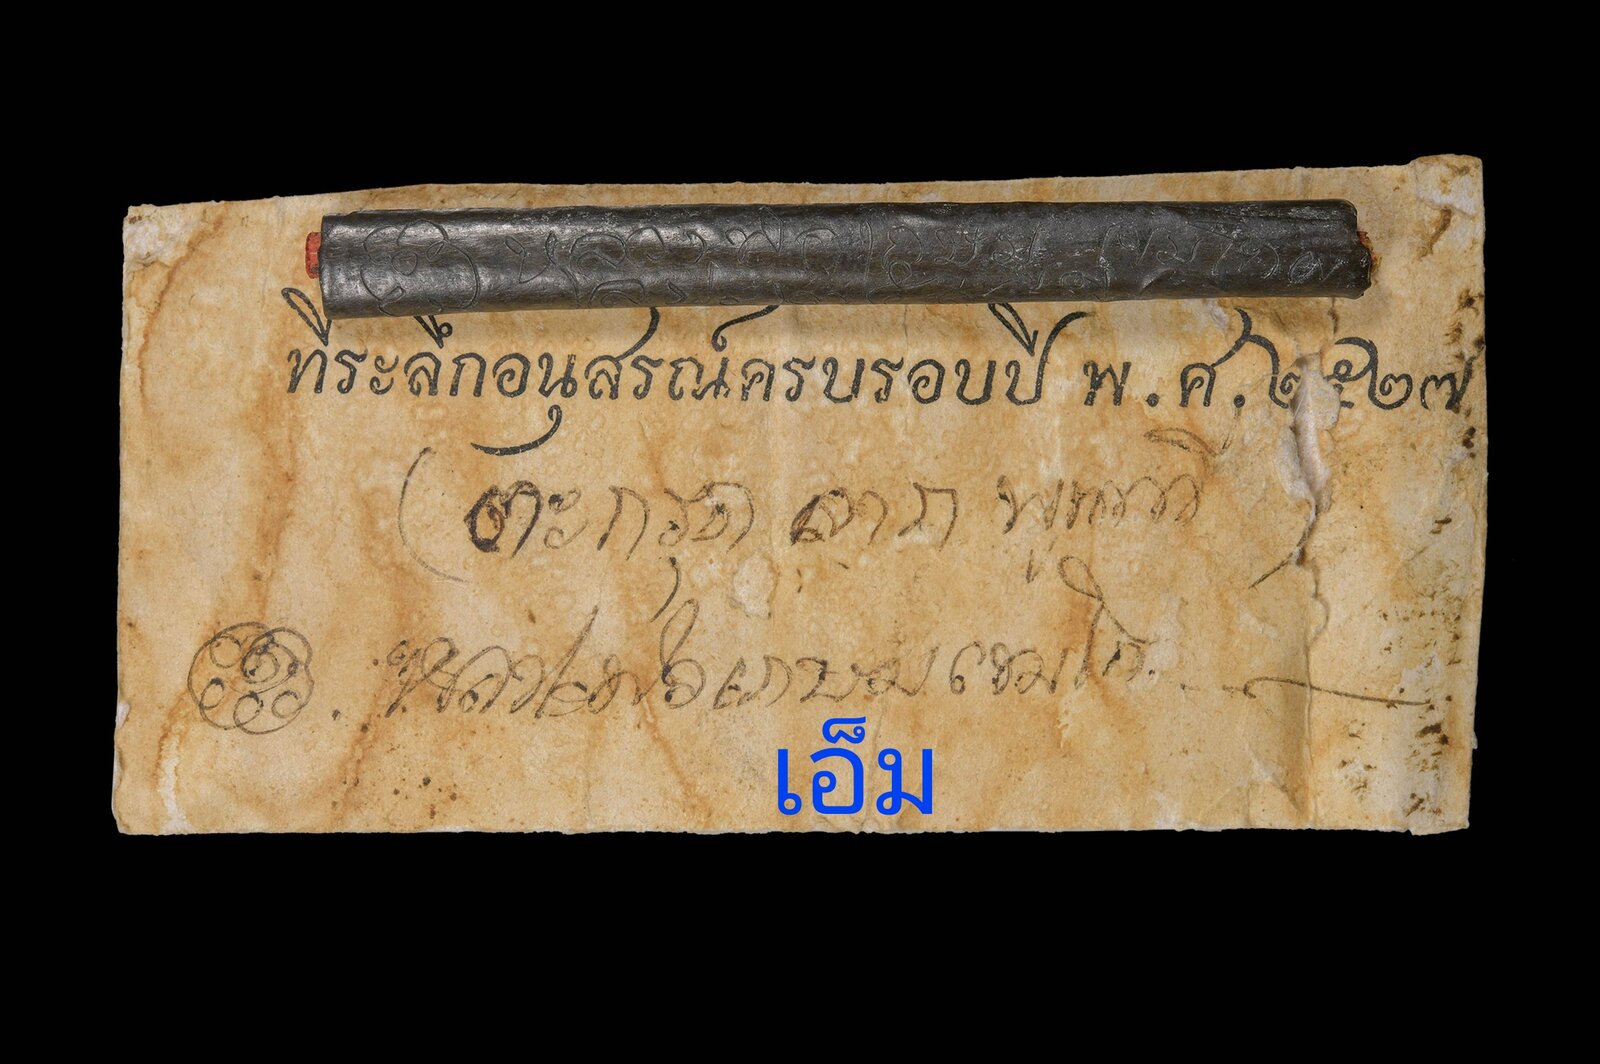 ที่ระลึกอนุสรณ์ครบรอบปี พ.ศ.๒๕๒๗
(ตะกรุด ลาภ
หลวงพ่อเกษม เขมโก
เอ็ม